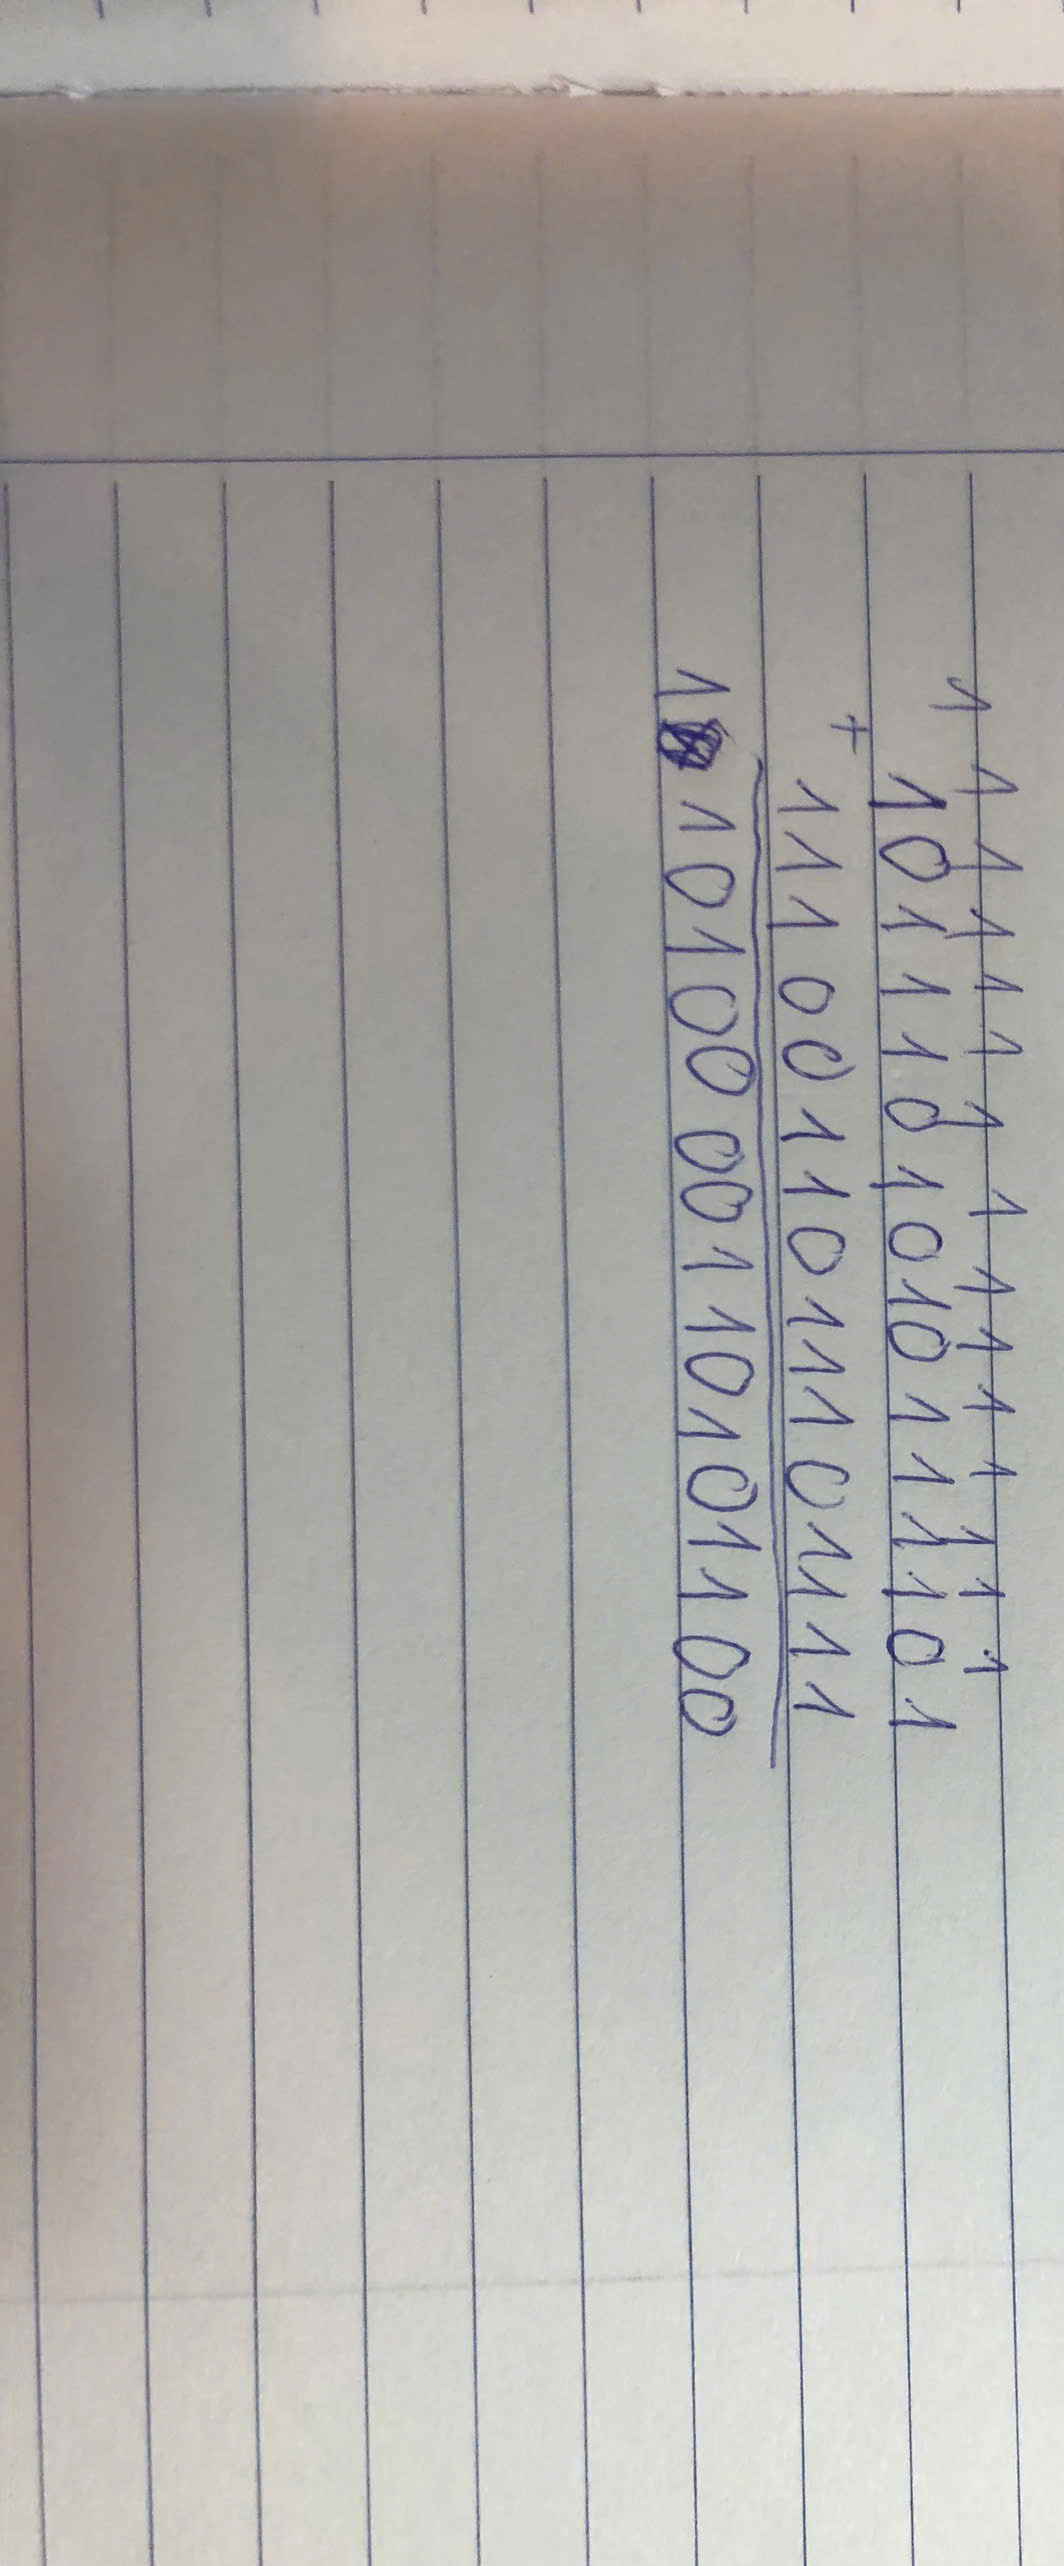 1 1 1 1 1 1 1 1 1 1 1 1 1 1 1
1011101010111101
+
1110011011101111
11010000110101100